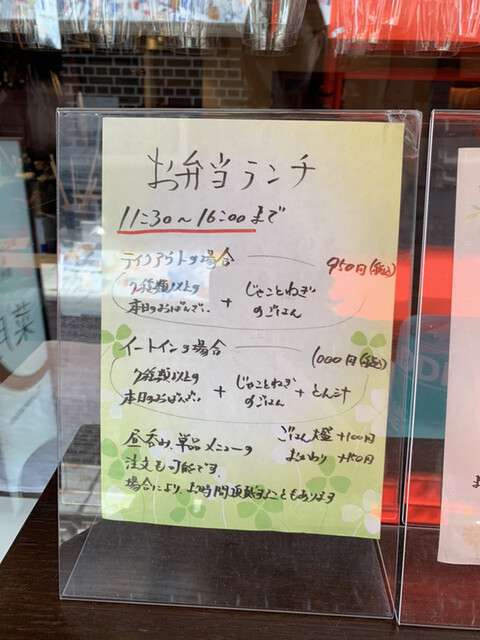 お弁当ランチ
11:30〜16:00まで
テイクアウトの場合 950円(税込)
7種類以上の
本日のおばんざい + じゃことねぎ
のごはん
イートインの場合 1000円(税込)
7種類以上の
本日のおばんざい + じゃことねぎ
のごはん + とん汁
昼呑み、単品メニューの
注文も可能です。
場合により、お時間頂戴することもあります
ごはん大盛 +100円
おかわり +150円